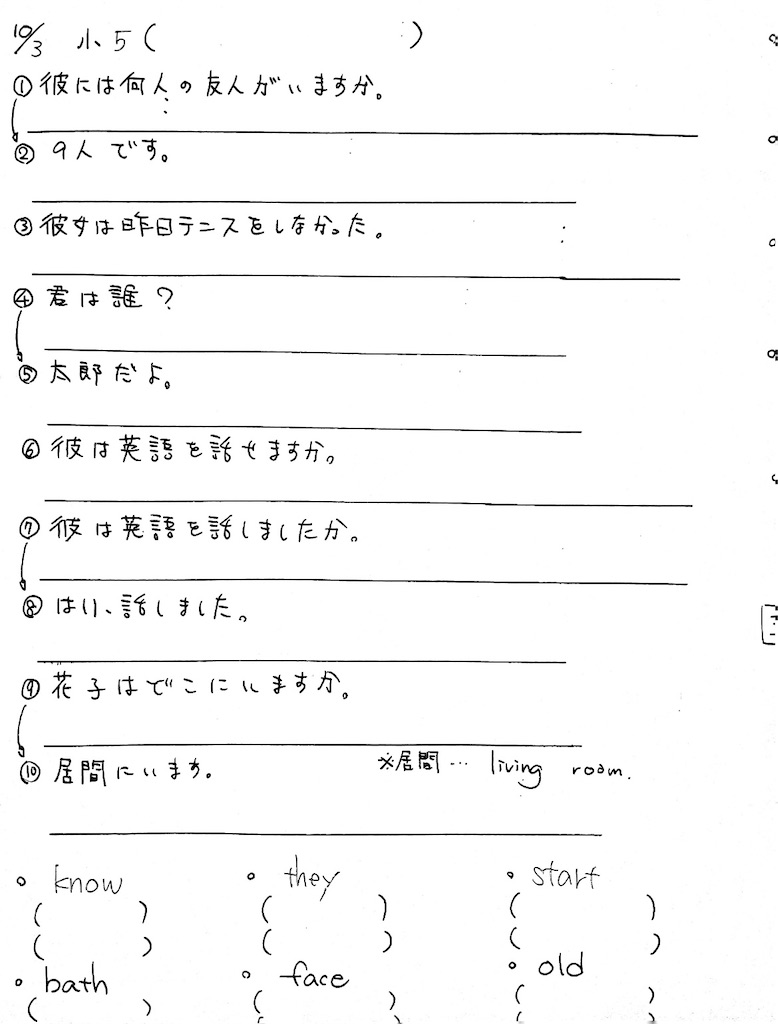 10/3 小5( )
①彼には何人の友人がいますか。
②9人です。
③彼女は昨日テニスをしなかった。
④君は誰?
⑤太郎だよ。
⑥彼は英語を話せますか。
⑦彼は英語を話しましたか。
⑧はい、話しました。
⑨花子はどこにいますか。
⑩居間にいます。 ※居間… living room.
• know • they • start
( ) ( ) ( )
( ) ( ) ( )
• bath • face • old
( ) ( ) ( )